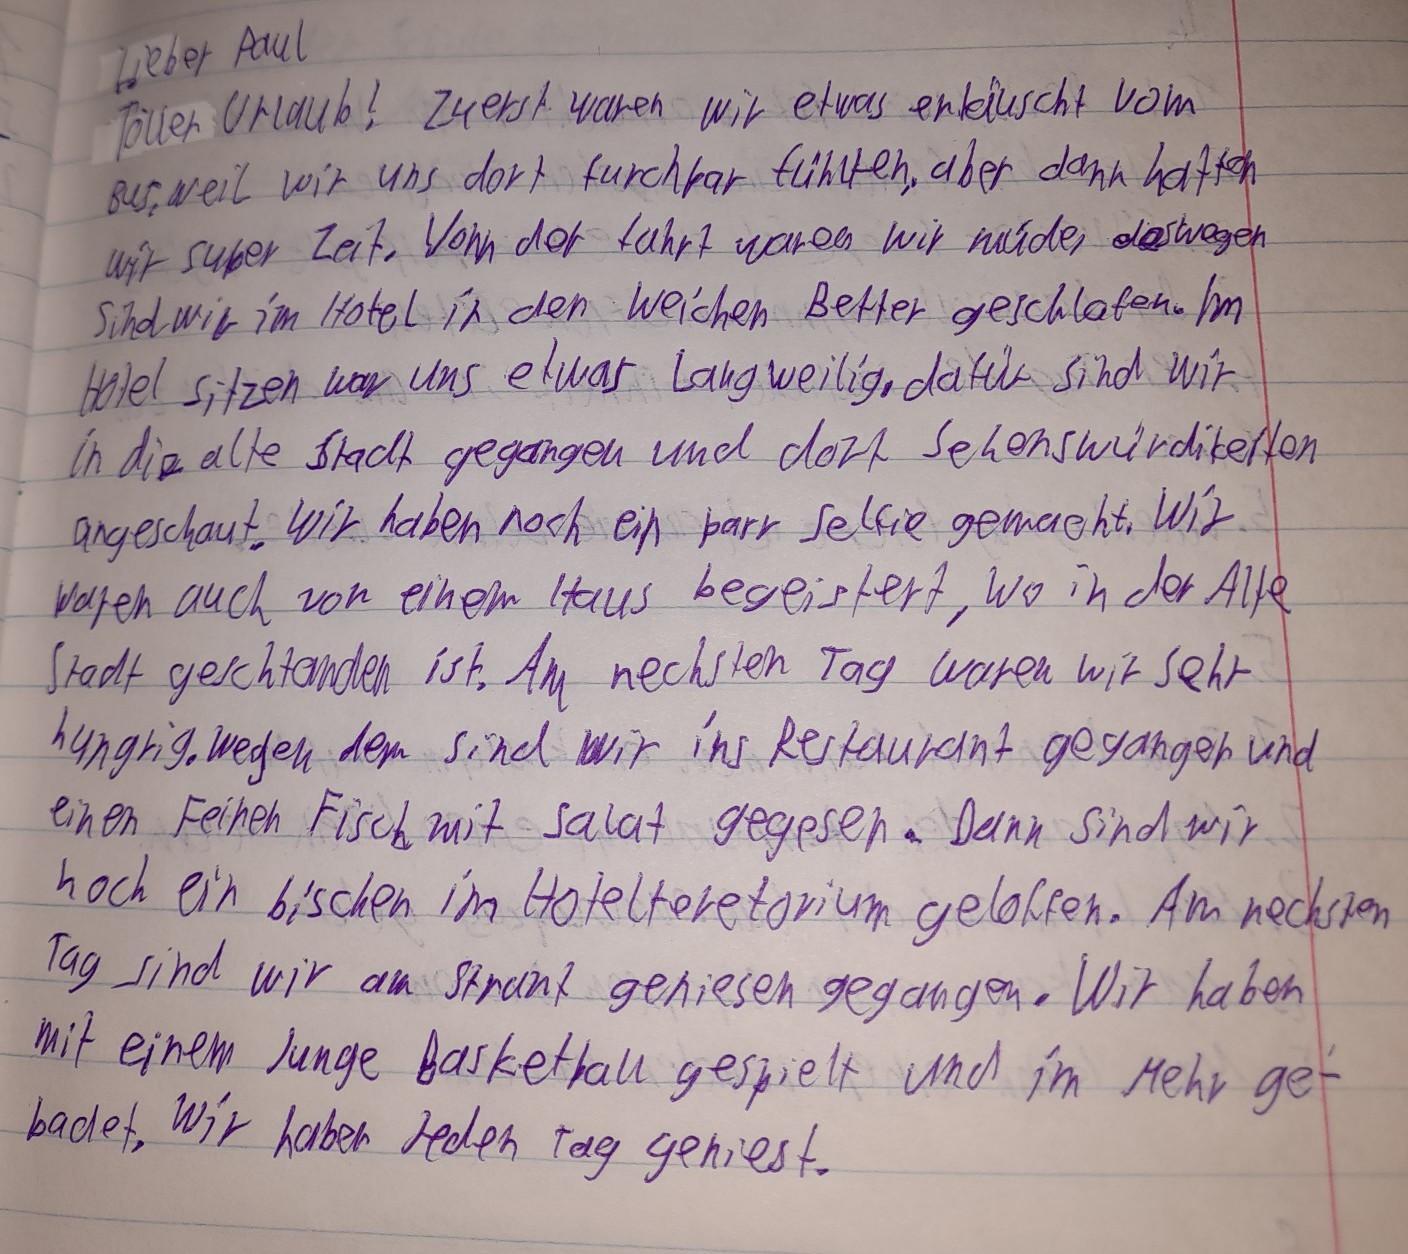 Lieber Paul
Toller Urlaub! Zuerst waren wir etwas enteuscht vom
Bus, weil wir uns dort furchbar fühlten, aber dann hatten
wir super Zeit. Vonn der fahrt waren wir müde, deswegen
sind wir im Hotel in den weichen Better geschlafen. Im
Hotel sitzen war uns etwas Langweilig. dafür sind wir
in die alte Stadt gegangen und dort Sehenswürdikeiten
angeschaut. Wir haben noch ein parr Selfie gemacht. Wir
waren auch von einem Haus begeistert, wo in der Alte
Stadt geschtanden ist. Am nechsten Tag waren wir sehr
hungrig. wegen dem sind wir ins Restaurant gegangen und
einen Feinen Fisch mit salat gegesen. Dann sind wir
noch ein bischen im Hotelteretorium geloffen. Am nechsten
Tag sind wir am Strant geniesen gegangen. Wir haben
mit einem Junge Basketball gespielt und im Mehr ge-
badet. Wir haben Jeden Tag geniest.